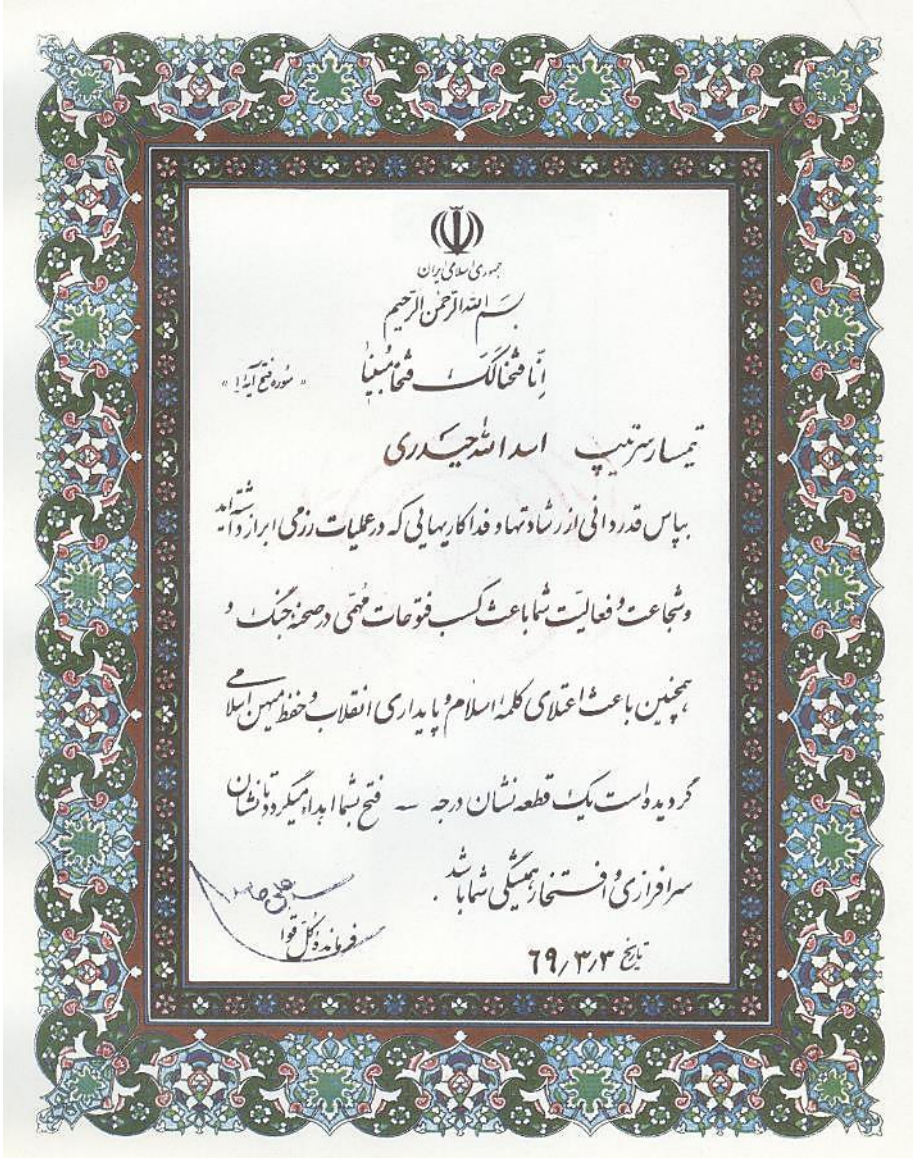 جمهوری اسلامی ایران
بسم الله الرحمن الرحیم
اِنّا فتحنا لَکَ فتحاً مُبیناً « سوره فتح آیه ۱ »
تیمسار سرتیپ اسدالله حیدری
بپاس قدردانی از رشادتها و فداکاریهایی که در عملیات رزمی ابراز داشته‌اید
و شجاعت و فعالیت شما باعث کسب فتوحات مُهمّی در صحنه جنگ و
همچنین باعث اعتلای کلمه اسلام و پایداری انقلاب و حفظ میهن اسلامی
گردیده است یک قطعه نشان درجه ــ فتح بشما اهداء میگردد تا نشان
سرافرازی و افتخار همیشگی شما باشد.
فرمانده کل قوا
تاریخ ۶۹/۳/۳